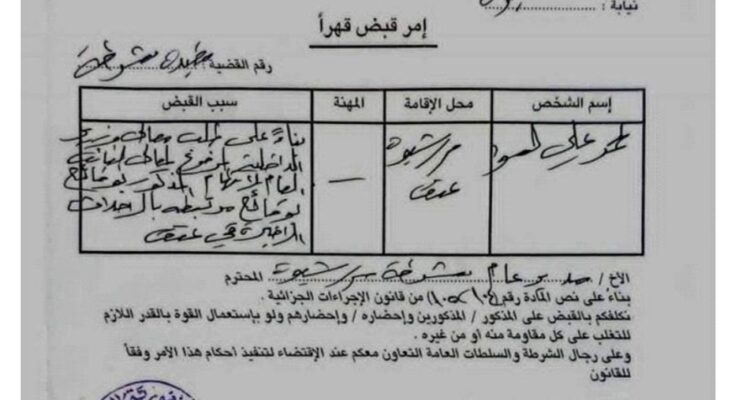 نيابة :
إمر قبض قهراً
رقم القضية :
إسم الشخص محل الإقامة المهنة سبب القبض
علي شبوة عتق — بناءً على طلب معالي وزير
الداخلية المرفوع لمعالي النائب
العام لاتهام المذكور بوقائع
مرتبطة بالاحداث
الاخيرة في عتق
الأخ / مدير عام شرطة شبوة المحترم
بناء على نص المادة رقم من قانون الإجراءات الجزائية .
نكلفكم بالقبض على المذكور / المذكورين وإحضاره / وإحضارهم ولو بإستعمال القوة بالقدر اللازم
للتغلب على كل مقاومة منه او من غيره .
وعلى رجال الشرطة والسلطات العامة التعاون معكم عند الإقتضاء لتنفيذ أحكام هذا الأمر وفقاً
للقانون